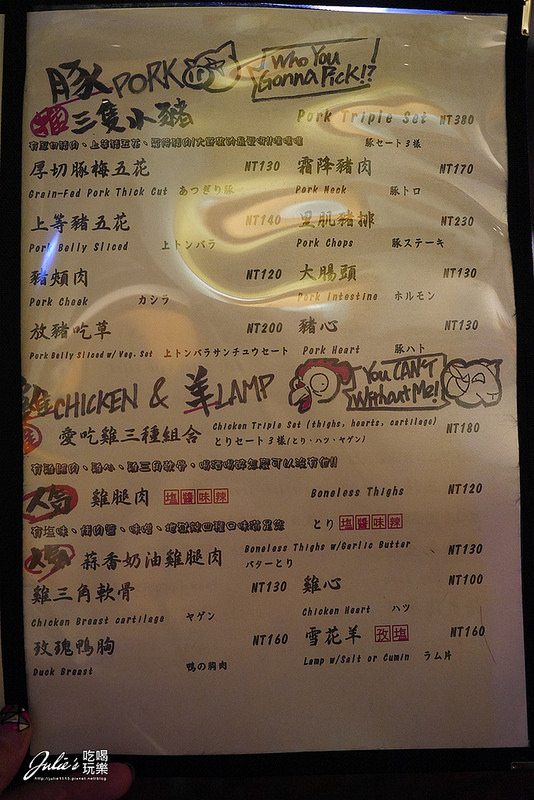 豚 PORK Who You Gonna Pick!?
三隻小豬 Pork Triple Set NT380
豚セート3樣
厚切豚梅五花 NT130 霜降豬肉 NT170
Grain-Fed Pork Thick Cut あつぎり豚 Pork Neck 豚トロ
上等豬五花 NT140 黑肌豬排 NT230
Pork Belly Sliced 上トンバラ Pork Chops 豚ステーキ
豬頰肉 NT120 大腸頭 NT130
Pork Cheek カシラ Pork Intestine ホルモン
放豬吃草 NT200 豬心 NT130
Pork Belly Sliced w/ Veg. Set 上トンバラサンチュウセート Pork Heart 豚ハト
雞 CHICKEN & 羊 LAMP You CAN'T Without Me!
愛吃雞三種組合 Chicken Triple Set (thighs, hearts, cartilage) NT180
とりセート3樣(とり・ハツ・ヤゲン)
有雞腿肉、雞心、雞三角軟骨，喝酒喝碎怎麼可以沒有他!!
人氣 雞腿肉 塩醬味辣 Boneless Thighs NT120
有塩味、烤肉醬、味噌、地獄辣四種口味滿足您 とり 塩醬味辣
人氣 蒜香奶油雞腿肉 Boneless Thighs w/Gerlic Butter NT130
バターとり
雞三角軟骨 NT130 雞心 NT100
Chicken Breast cartilage ヤゲン Chicken Heart ハツ
玫瑰鴨胸 NT160 雪花羊 孜塩 NT160
Duck Breast 鴨の胸肉 Lamp w/Salt or Cumin ラム片
Julie's 吃喝玩樂
http://julie1115.pixnet.net/blog